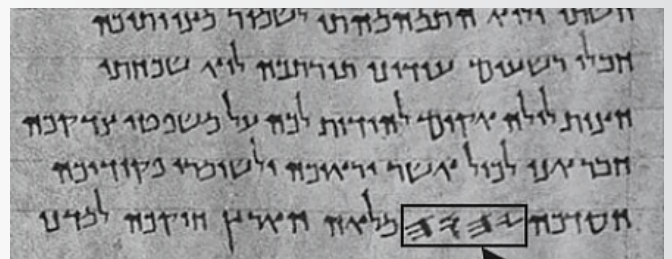 חשתי ולוא התמהמהתי לשמור מצוותיכה
חבלי רשעים עודוני תורתכה לוא שכחתי
חצות לילה אקום להודות לכה על משפטי צדקכה
חבר אני לכול אשר יראוכה ולשומרי פקודיכה
חסדכה 𐤉𐤄𐤅𐤄 מלאה הארץ חוקיכה למדני